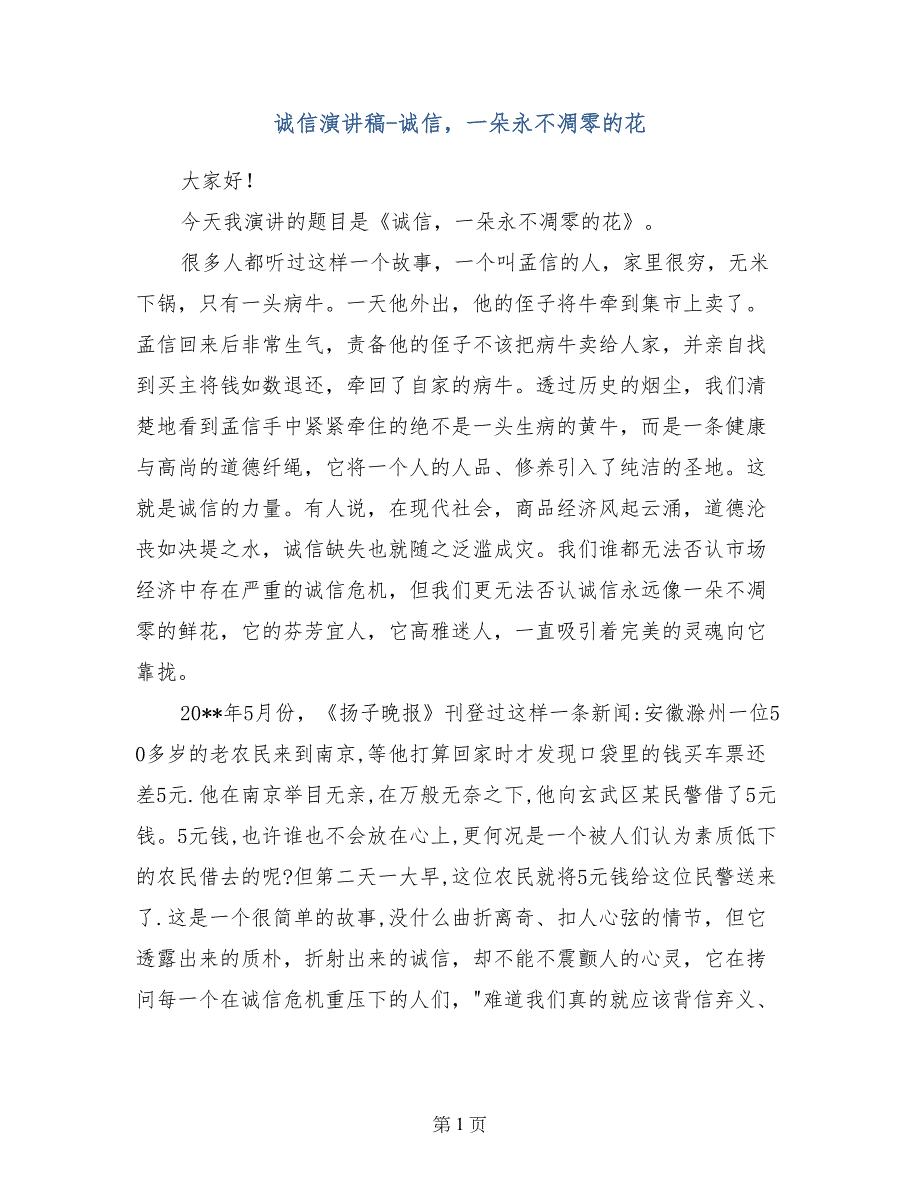 诚信演讲稿-诚信，一朵永不凋零的花
大家好！
今天我演讲的题目是《诚信，一朵永不凋零的花》。
很多人都听过这样一个故事，一个叫孟信的人，家里很穷，无米
下锅，只有一头病牛。一天他外出，他的侄子将牛牵到集市上卖了。
孟信回来后非常生气，责备他的侄子不该把病牛卖给人家，并亲自找
到买主将钱如数退还，牵回了自家的病牛。透过历史的烟尘，我们清
楚地看到孟信手中紧紧牵住的绝不是一头生病的黄牛，而是一条健康
与高尚的道德纤绳，它将一个人的人品、修养引入了纯洁的圣地。这
就是诚信的力量。有人说，在现代社会，商品经济风起云涌，道德沦
丧如决堤之水，诚信缺失也就随之泛滥成灾。我们谁都无法否认市场
经济中存在严重的诚信危机，但我们更无法否认诚信永远像一朵不凋
零的鲜花，它的芬芳宜人，它高雅迷人，一直吸引着完美的灵魂向它
靠拢。
20**年5月份，《扬子晚报》刊登过这样一条新闻:安徽滁州一位5
0多岁的老农民来到南京,等他打算回家时才发现口袋里的钱买车票还
差5元.他在南京举目无亲,在万般无奈之下,他向玄武区某民警借了5元
钱。5元钱,也许谁也不会放在心上,更何况是一个被人们认为素质低下
的农民借去的呢?但第二天一大早,这位农民就将5元钱给这位民警送来
了.这是一个很简单的故事,没什么曲折离奇、扣人心弦的情节，但它
透露出来的质朴，折射出来的诚信，却不能不震颤人的心灵，它在拷
问每一个在诚信危机重压下的人们，"难道我们真的就应该背信弃义、
第 1 页